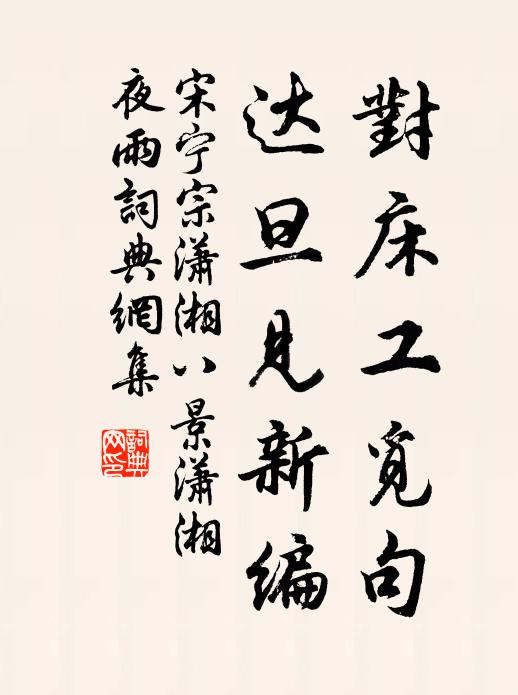 對床工覓句
达旦見新编
宋宁宗瀟湘八景瀟湘
夜雨詞典網集
詞典网印